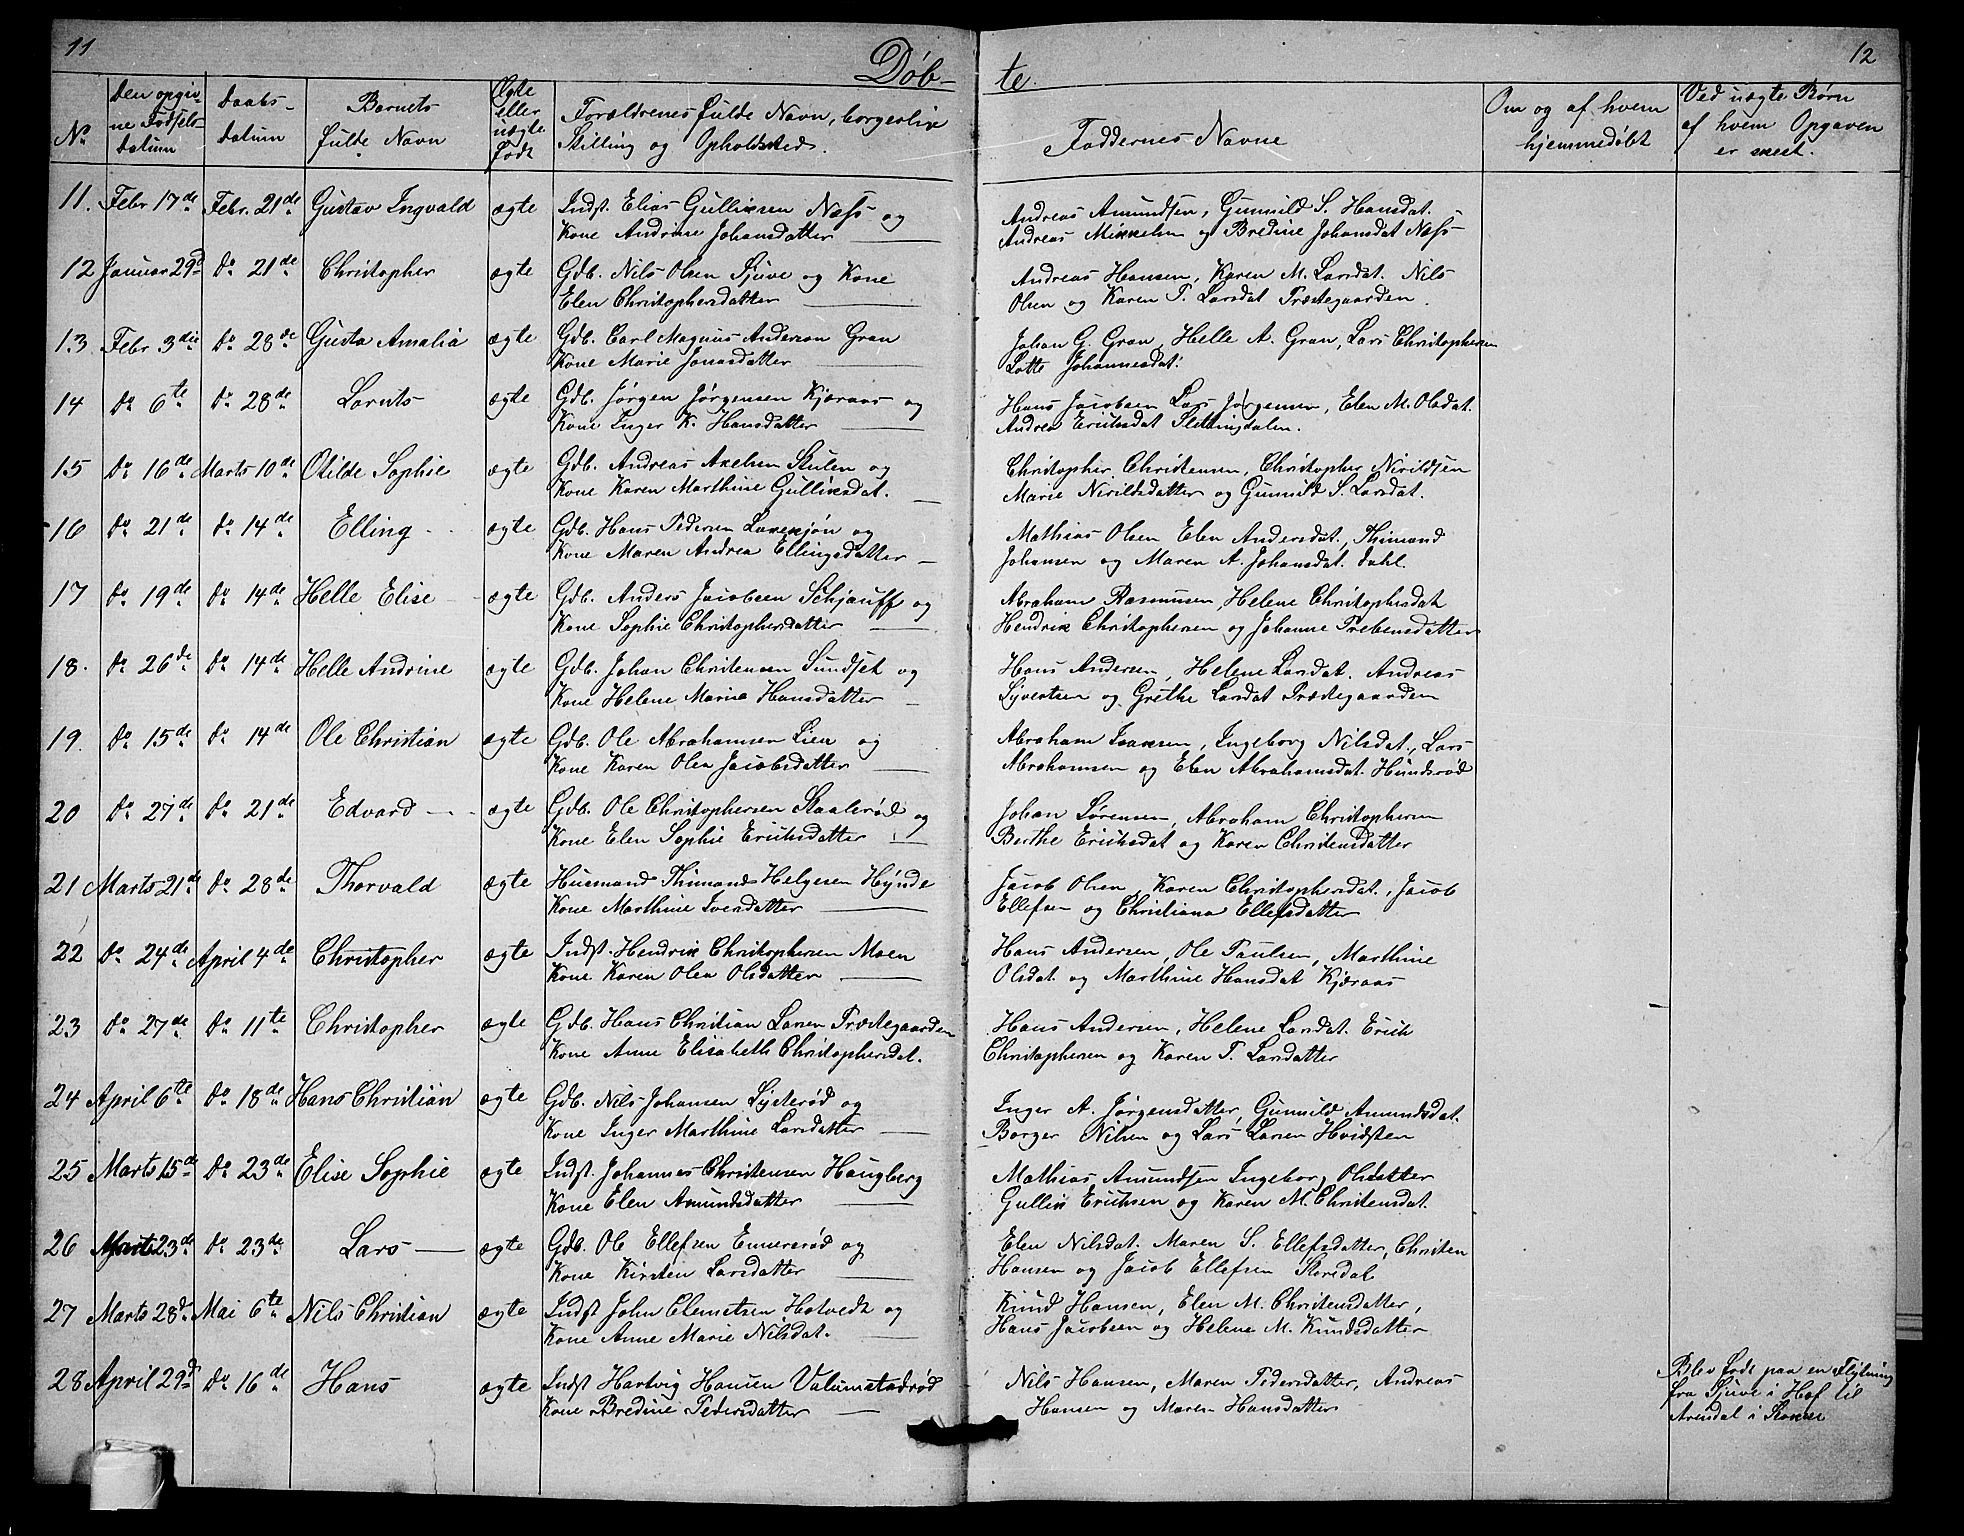 11
12
Døb-
te.
No
Den opgiv-
ne Fødsels-
datum
Daabs-
datum
Barnets
fulde Navn
Ægte
eller
uægte
født
Forældrenes fulde Navn, borgerlige
Stilling og Opholdssted.
Faddernes Navne
Om og af hvem
hjemmedøbt
Ved uægte Børn
af hvem Opgaven
er skeet.
11. Febr 17de Febr. 21de Gustav Ingvald ægte Indst. Elias Gulliksen Næss og
Kone Andrine Johansdatter
Andreas Amundsen, Gunnild S. Hansdat.
Andreas Mikkelsen og Bredine Johansdat Næss
12 Januar 29d Do 21de Christopher ægte Gdb. Nils Olsen Sjuve og Kone
Elen Christophersdatter
Andreas Hansen, Karen M. Larsdat. Nils
Olsen og Karen T. Larsdat Præstegaarden.
13 Febr 3die Do 28de Gusta Amalia ægte Gdb. Carl Magnus Anderson Gran
Kone Marie Jonasdatter
Johan G. Gran, Helle A. Gran, Lars Christophersen
Lotte Johannesdat.
14 Do 6te Do 28de Laruts ægte Gdb. Jørgen Jørgensen Kjæraas og
Kone Inger K. Hansdatter
Hans Jacobsen Lars Jørgensen, Elen M. Olsdat.
Andrea Erichsdat Slettingdalen.
15 Do 16de Marts 10de Otilde Sophie ægte Gdb. Andreas Axelsen Skulen og
Kone Karen Marthine Gulliksdat.
Christopher Christensen, Christopher Nirildsen
Marie Nirildsdatter og Gunnild S. Larsdat.
16 Do 21de Do 14de Elling ægte Gdb. Hans Pedersen Laxesjøn og
Kone Maren Andrea Ellingsdatter
Mathias Olsen Elen Andersdat., Thimand
Johansen og Maren A. Johansdat. Dahl.
17 Do 19de Do 14de Helle Elise ægte Gdb. Anders Jacobsen Schjauff og
Kone Sophie Christophersdatter
Abraham Rasmusen, Helene Christophersdat
Hendrik Christophersen og Johanne Prebensdatter
18. Do 26de Do 14de Helle Andrine ægte Gdb. Johan Christensen Sundset og
Kone Helene Maria Hansdatter
Hans Andersen, Helene Larsdat. Andreas
Syvertsen og Grethe Larsdat Præstegaarden
19. Do 15de Do 14de Ole Christian ægte Gdb. Ole Abrahamsen Lien og
Kone Karen Olea Jacobsdatter
Abraham Isaksen, Ingeborg Nilsdat., Lars
Abrahamsen og Elen Abrahamsdat. Hundsrød
20 Do 27de Do 21de Edvard ægte Gdb. Ole Christophersen Skaalerød og
Kone Elen Sophie Erichsdatter
Johan Sørensen, Abraham Christophersen
Berthe Erichsdat og Karen Christensdatter
21 Marts 21de Do 28de Thorvald ægte Husmand Thimand Helgesen Hynde
Kone Marthine Iversdatter
Jacob Olsen, Karen Christophersdat., Jacob
Ellefsen og Christiana Ellefsdatter
22 Do 24de April 4de Christopher ægte Indst. Hendrik Christophersen Moen
Kone Karen Olea Olsdatter
Hans Andersen, Ole Paulsen, Marthine
Olsdat. og Marthine Hansdat Kjæraas
23 Do 27de Do 11te Christopher ægte Gdb. Hans Christian Larsen Præstegaarden
Kone Anne Elisabeth Christophersdat.
Hans Andersen, Helene Larsdat. Erich
Christophersen og Karen T. Larsdatter
24 April 6te Do 18de Hans Christian ægte Gdb. Nils Johansen Lysterød og
Kone Inger Marthine Larsdatter
Inger A. Jørgensdatter, Gunnild Amundsdat.
Borger Nilsen og Lars Larsen Hvidsten
25 Marts 15de Do 23de Elise Sophie ægte Indst. Johannes Christensen Haugberg
Kone Elen Amundsdatter
Mathias Amundsen Ingeborg Olsdatter
Gullik Erichsen og Karen M. Christensdat.
26 Marts 23de Do 23de Lars ægte Gdb. Ole Ellefsen Ennersrød og
Kone Kirsten Larsdatter
Elen Nilsdat. Maren S. Ellefsdatter, Christen
Hansen og Jacob Ellefsen Storedal
27 Marts 28de Mai 6te Nils Christian ægte Indst John Clemetsen Hotvedt og
Kone Anne Marie Nilsdat.
Knud Hansen, Elen M. Christensdatter,
Hans Jacobsen og Helene M. Knudsdatter
28 April 29d Do 16de Hans ægte Indst Hartvig Hansen Valumstadrød
Kone Bredine Pedersdatter
Nils Hansen, Maren Pedersdatter, Andreas
Hansen og Maren Hansdatter
Blev født paa en Flytning
fra Sjuve i Hof til
Arendal i